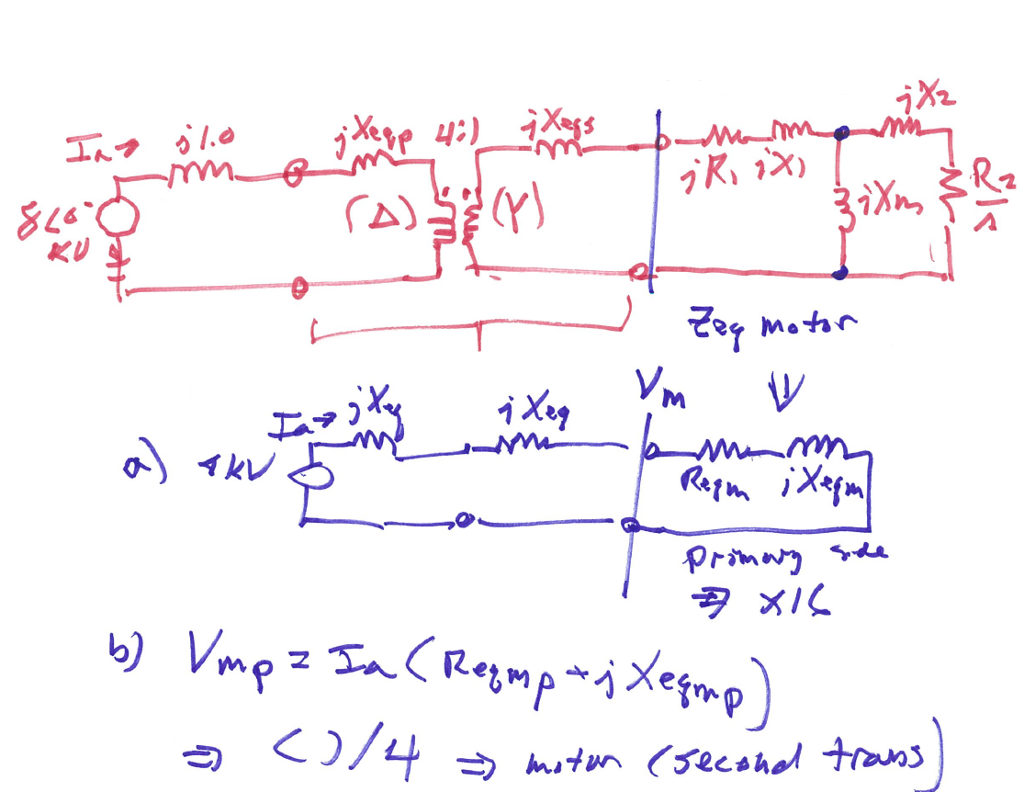 Ia → j1.0 jXeqp 4:1 jXeqs jR1 jX1 jX2
8∠0° KV (Δ) (Y) jXm R2/s
Zeq motor
Ia → jXeq jXeq Vm ⇓
a) 4kV Reqm jXeqm
primary side
⇒ x16
b) Vmp = Ia (Reqmp + jXeqmp)
⇒ ( )/4 ⇒ motor (second trans)